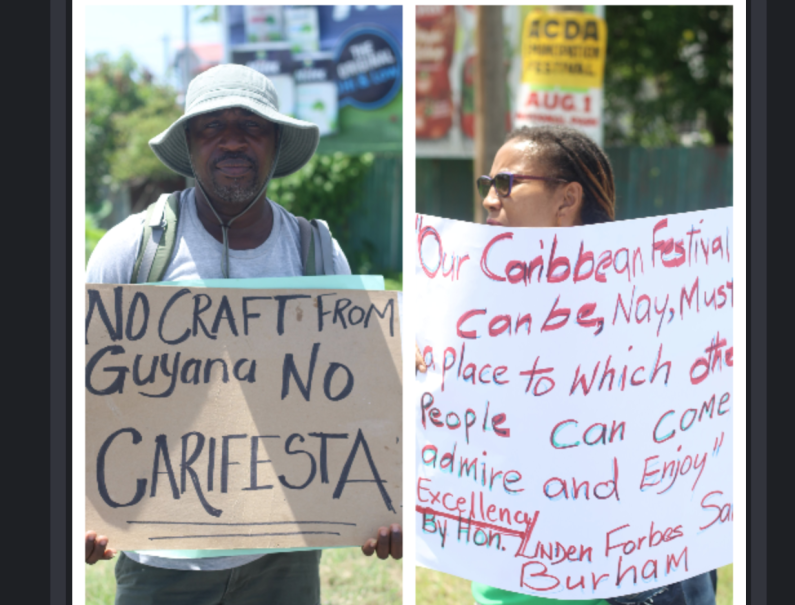 NO CRAFT FROM
Guyana NO
CARIFESTA
THE
ORIGINAL
ACDA
EMANCIPATION
FESTIVAL
AUG 1
NATIONAL PARK
"Our Caribbean Festival
can be, Nay, Must
a place to which othe
People can come
admire and Enjoy"
Excellency
By Hon. Linden Forbes Sa
Burham